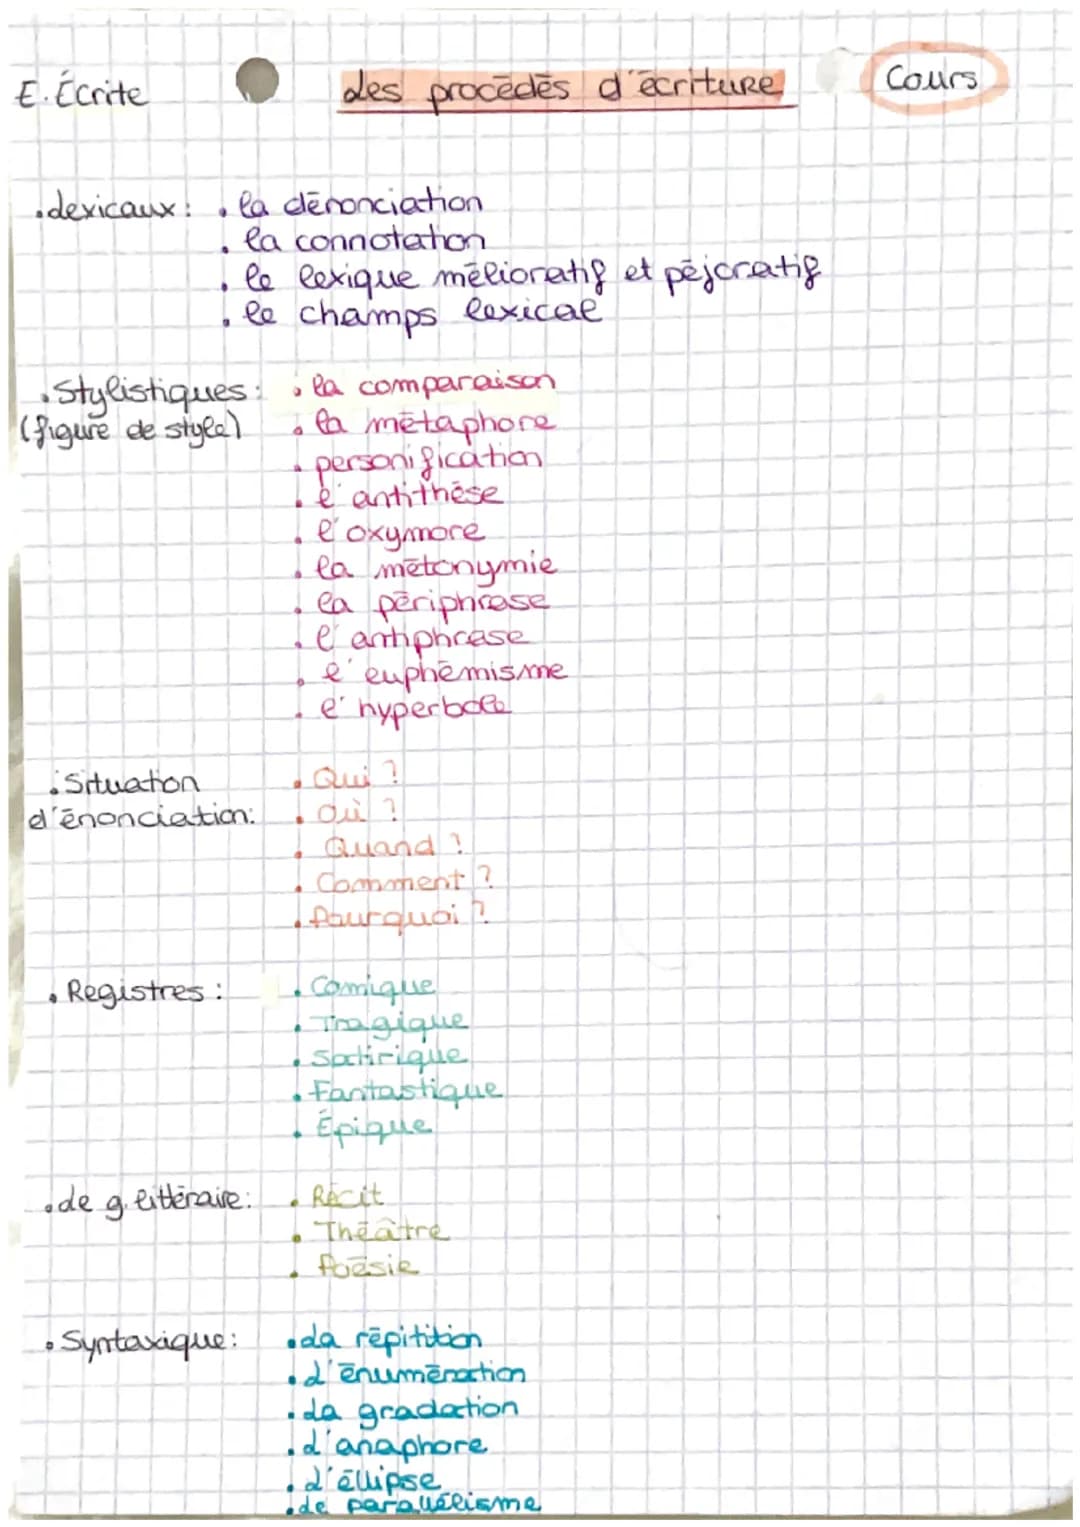 E. Écrite
Les procédés d'écriture
Cours
• Lexicaux : • la dénonciation
• la connotation
• le lexique mélioratif et péjoratif
• le champs lexical
• Stylistiques : • la comparaison
(figure de style) • la métaphore
• personification
• l'antithèse
• l'oxymore
• la métonymie
• la périphrase
• l'antiphrase
• l'euphémisme
• l'hyperbole
• Situation • Qui ?
d'énonciation : • Où ?
• Quand ?
• Comment ?
• Pourquoi ?
• Registres : • Comique
• Tragique
• Satirique
• Fantastique
• Épique
• de g. littéraire : • Récit
• Théâtre
• Poésie
• Syntaxique : • La répitition
• L'énumération
• La gradation
• L'anaphore
• L'éllipse
• Le parallélisme